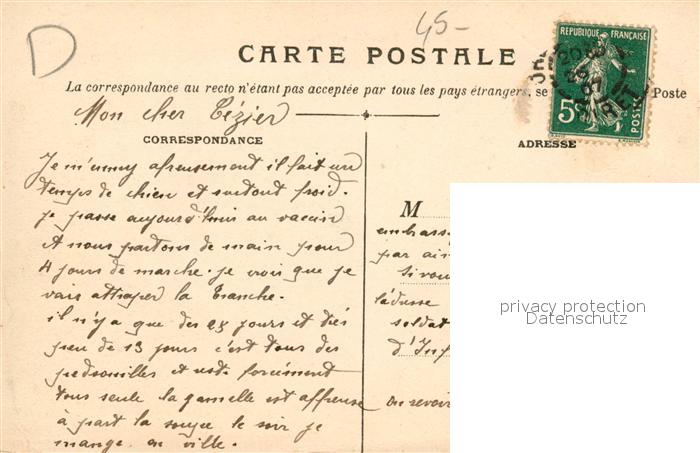 D
45-
RÉPUBLIQUE FRANÇAISE
5c
POSTES
CARTE POSTALE
La correspondance au recto n'étant pas acceptée par tous les pays étrangers, se
Poste
Mon cher Tézier
CORRESPONDANCE
Je m'ennuy afreusement il fait un
temps de chien et surtout froid.
je passe aujourd'huis au vaccin
et nous partons de main pour
4 jours de marche. je crois que je
vais attraper la tranche.
il n'y a que des 28 jours et très
peu de 13 jours c'est tous des
et forcément
tous seule la gamelle est affreuse
à part la soupe le soir je
mange en ville.
ADRESSE
M
embrass
par ai
Si vou
l'adresse
soldat
d'Inf
au revoir
privacy protection
Datenschutz